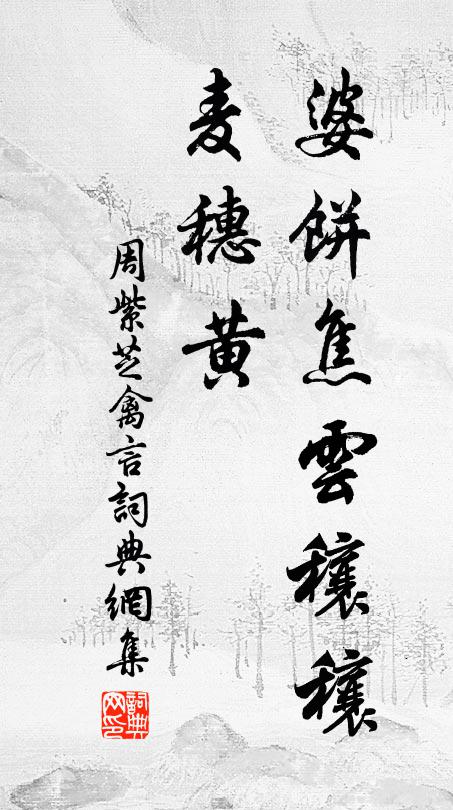 婆餅焦雲穰穰
麦穗黄
周紫芝禽言詞典網集
詞典网印